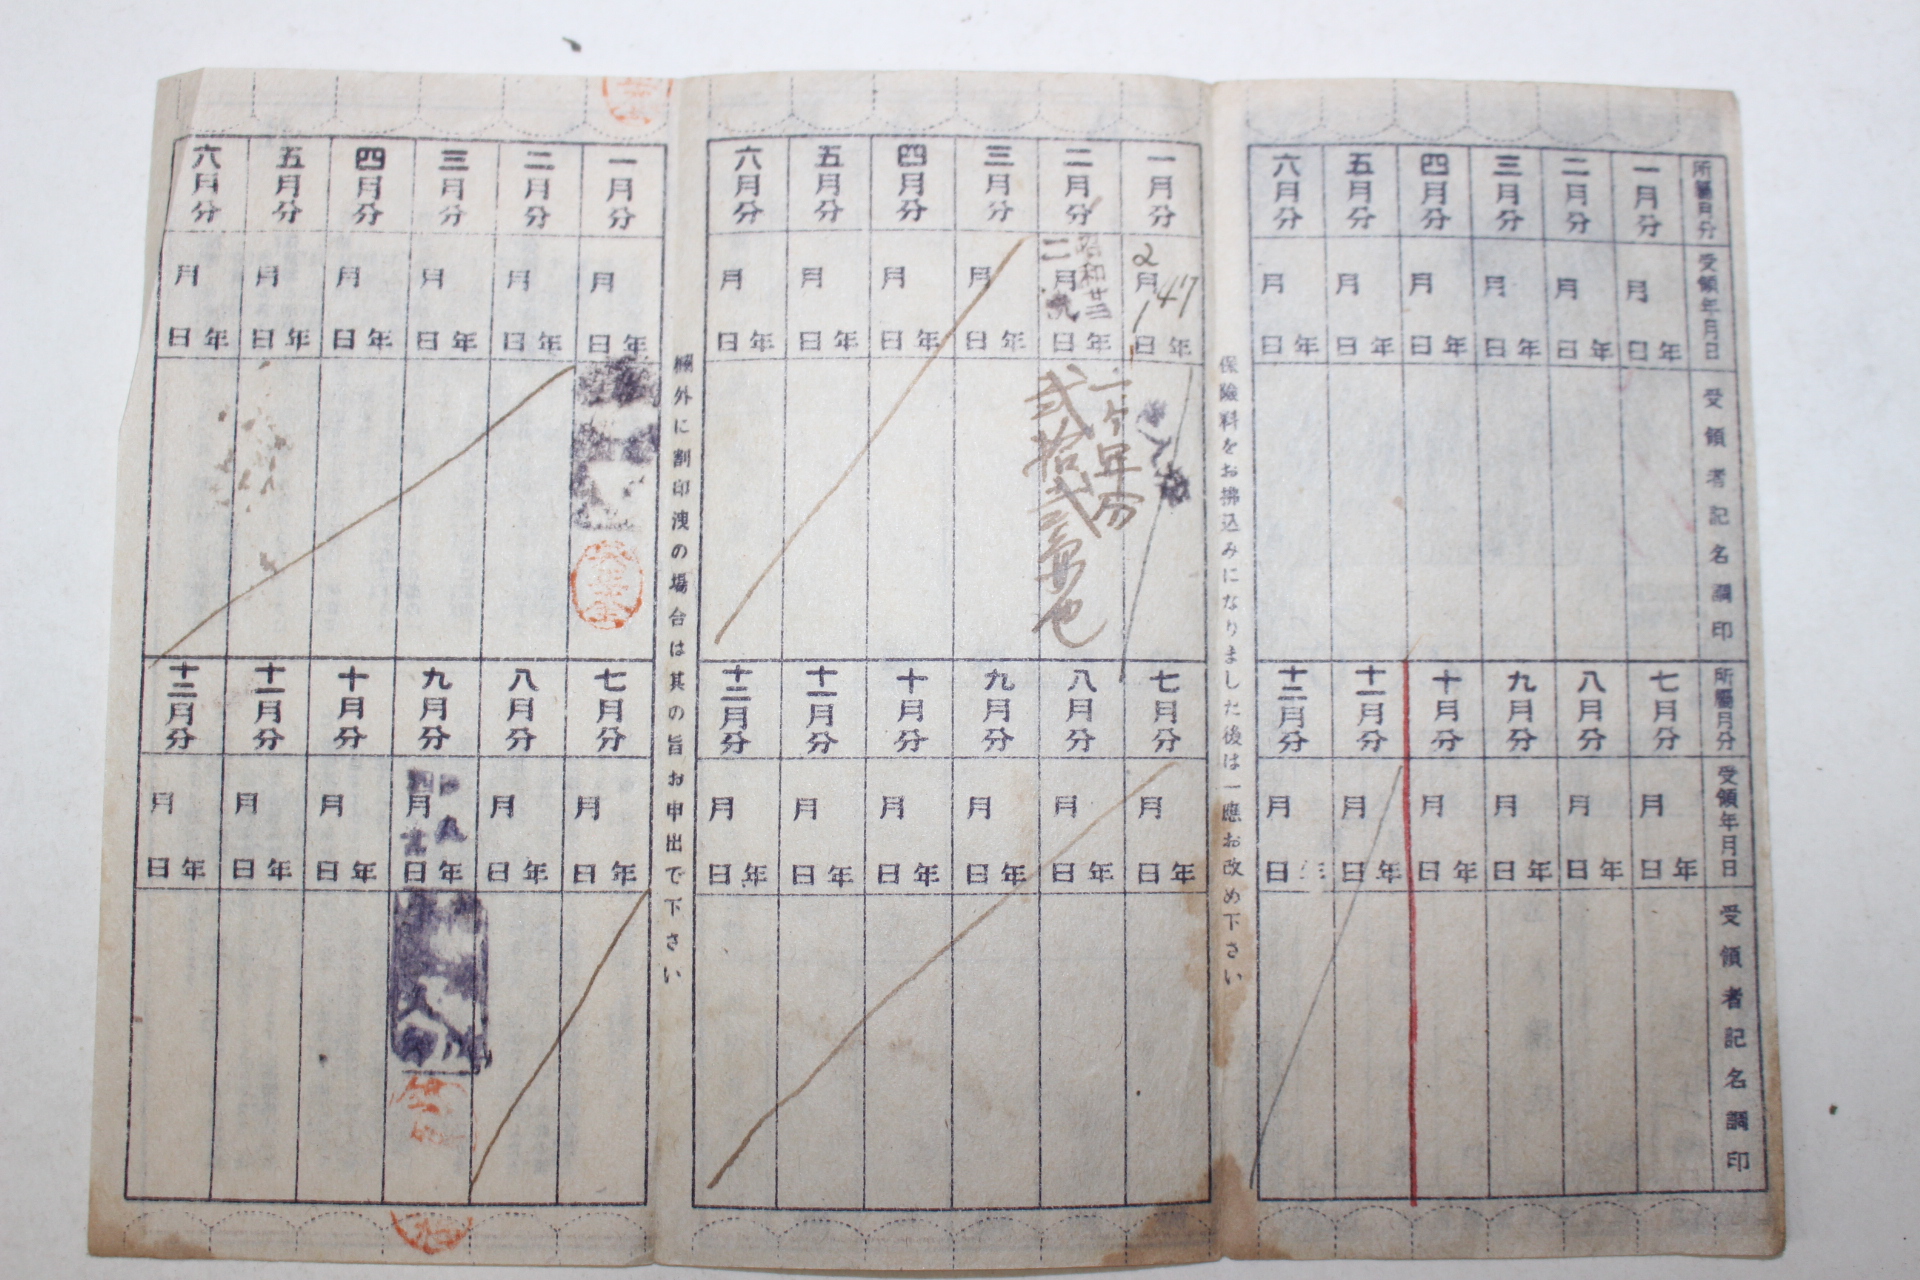 所屬月分
一月分
二月分
三月分
四月分
五月分
六月分
受領年月日
年月日
年月日
年月日
年月日
年月日
年月日
受領者記名調印
所屬月分
七月分
八月分
九月分
十月分
十一月分
十二月分
受領年月日
年月日
年月日
年月日
年月日
年月日
年月日
受領者記名調印
保險料をお拂込みになりました後は一應お改め下さい
一月分
二月分
三月分
四月分
五月分
六月分
年月日
2 1 47
年月日
昭和廿二
二
年月日
年月日
年月日
年月日
一ヶ年分
弐拾弐
也
七月分
八月分
九月分
十月分
十一月分
十二月分
年月日
年月日
年月日
年月日
年月日
年月日
欄外に割印洩の場合は其の旨お申出で下さい
一月分
二月分
三月分
四月分
五月分
六月分
年月日
年月日
年月日
年月日
年月日
年月日
七月分
八月分
九月分
十月分
十一月分
十二月分
年月日
年月日
年月日
年月日
年月日
年月日